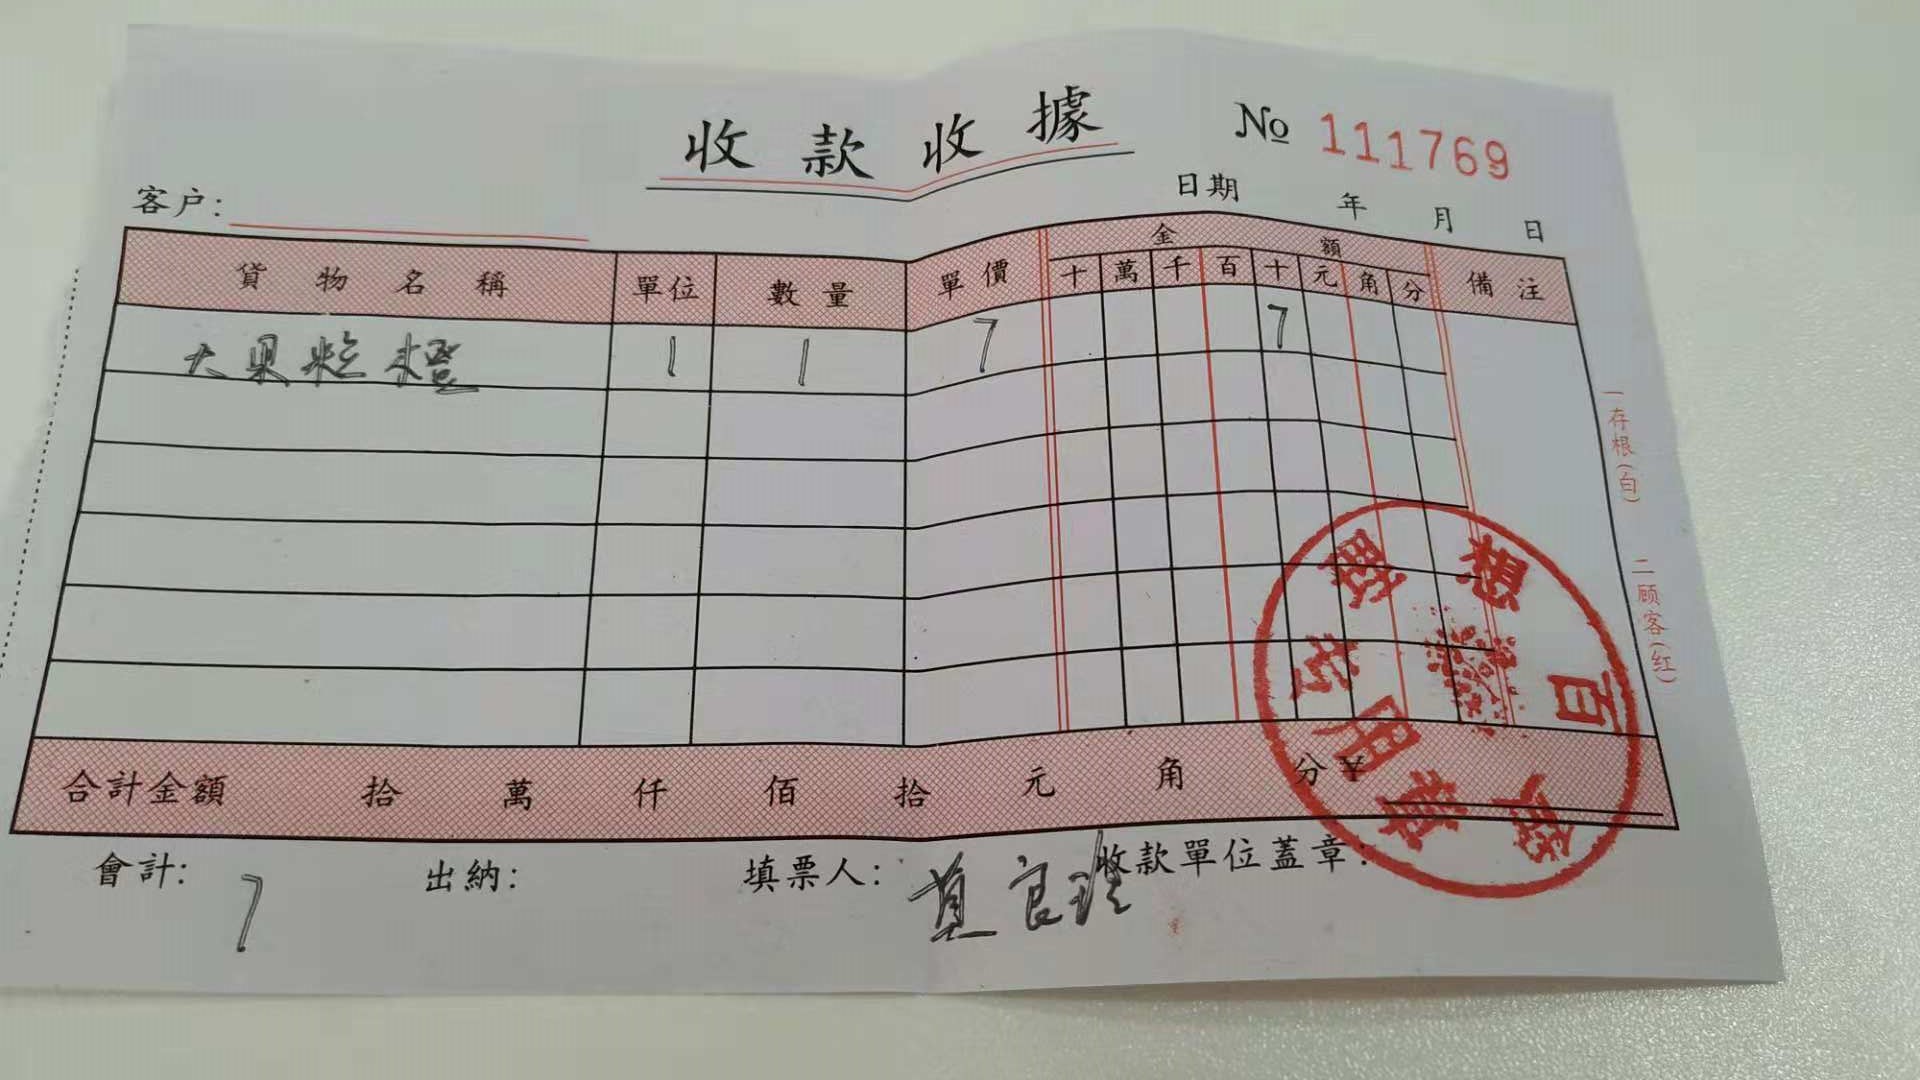 收款收據
№ 111769
客户:
日期 年 月 日
貨物名稱 單位 數量 單價 金額 備注
十 萬 千 百 十 元 角 分
大果粒橙 1 1 7 7
合計金額 拾 萬 仟 佰 拾 元 角 分 ¥
會計: 出納: 填票人: 收款單位蓋章:
7
一存根(白) 二顾客(红)
想 百
用 章